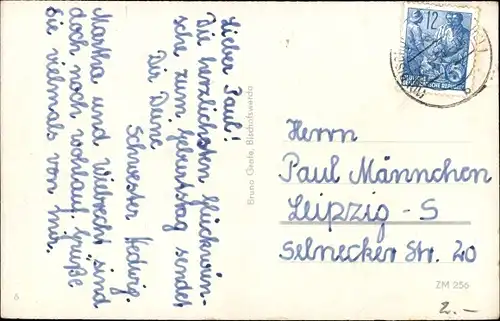 Lieber Paul!
Die herzlichsten Glückwün-
sche zum Geburtstag sendet
Dir Deine
Schwester Hedwig.
Martha und Wilbrecht sind
doch noch wohlauf. Grüße
Sie vielmals von mir.
Bruno Geefe, Bischofswerda
12
Herrn
Paul Männchen
Leipzig - S
Selnecker Str. 20
6
ZM 256
2.-